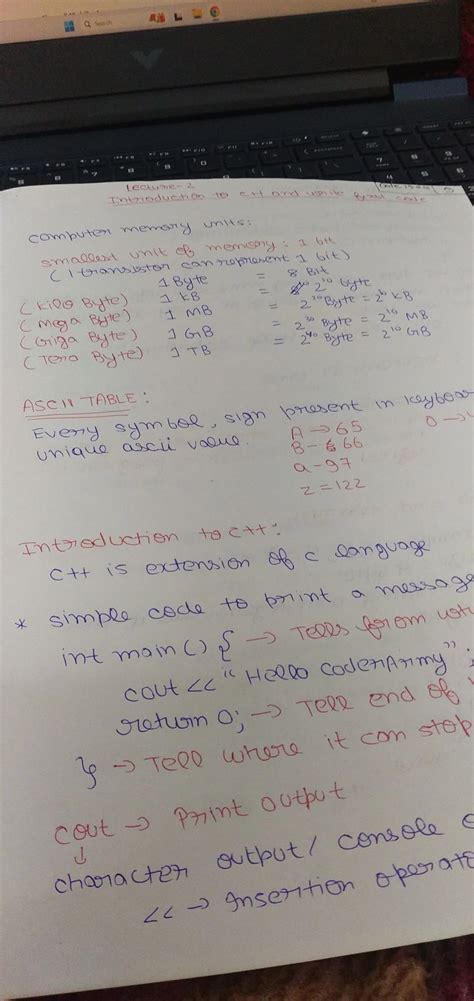 Search
Lecture-2
Introduction to C++ and write first code
Computer memory units:
smallest unit of memory: 1 bit
(1 transistor can represent 1 bit)
1 Byte = 8 Bit
(Kilo Byte) 1 KB = 2^10 byte
(Mega Byte) 1 MB = 2^20 Byte = 2^10 KB
(Giga Byte) 1 GB = 2^30 Byte = 2^10 MB
(Tera Byte) 1 TB = 2^40 Byte = 2^10 GB
ASCII TABLE:
Every symbol, sign present in keyboar
unique ascii value.
A → 65
B - 66
a - 97
z = 122
0 →
Introduction to C++:
C++ is extension of C language
* simple code to print a message
int main () { → Tells from
cout << "Hello CoderArmy";
return 0; → Tell end of
} → Tell where it can stop
cout → Print output
↓
character output / console
<< → Insertion operat